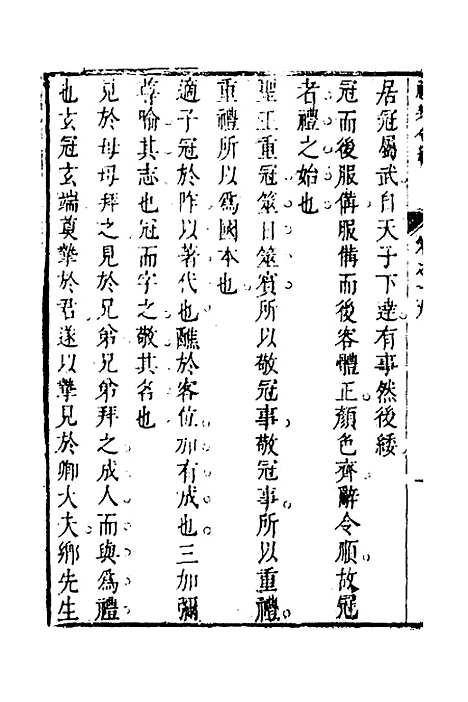 禮樂合編
卷之十九
居冠屬武自天子下達有事然後緌
冠而後服備服備而後容體正顏色齊辭令順故冠
者禮之始也
聖王重冠筮日筮賓所以敬冠事敬冠事所以重禮
重禮所以爲國本也
適子冠於阼以著代也醮於客位加有成也三加彌
尊喻其志也冠而字之敬其名也
見於母母拜之見於兄弟兄弟拜之成人而與爲禮
也玄冠玄端奠摯於君遂以摯見於卿大夫鄉先生